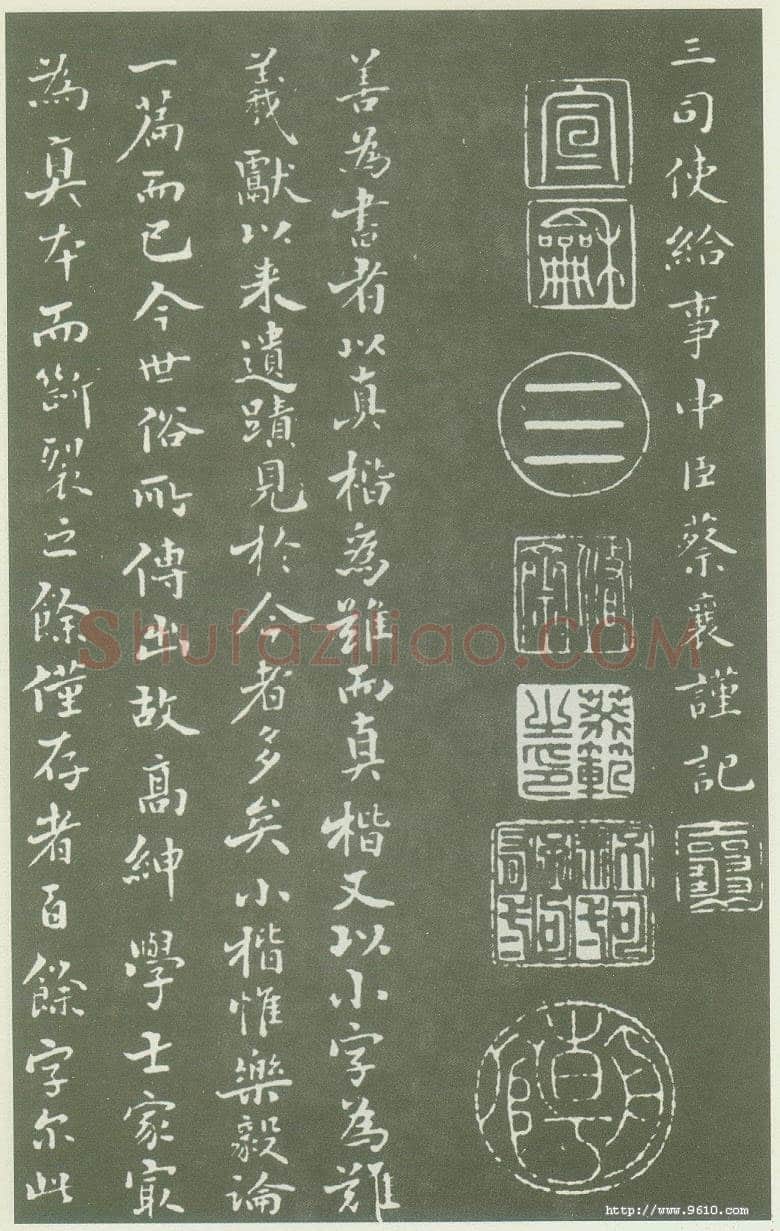 三司使給事中臣蔡襄謹記
宣
龢
三
蔡範
之印
善為書者以真楷為難而真楷又以小字為難
羲獻以来遺蹟見於今者多矣小楷惟樂毅論
一篇而已今世俗所傳出故高紳學士家冣
為真本而斷裂之餘僅存者百餘字尔此
Shufaziliao.COM
http://www.9610.com